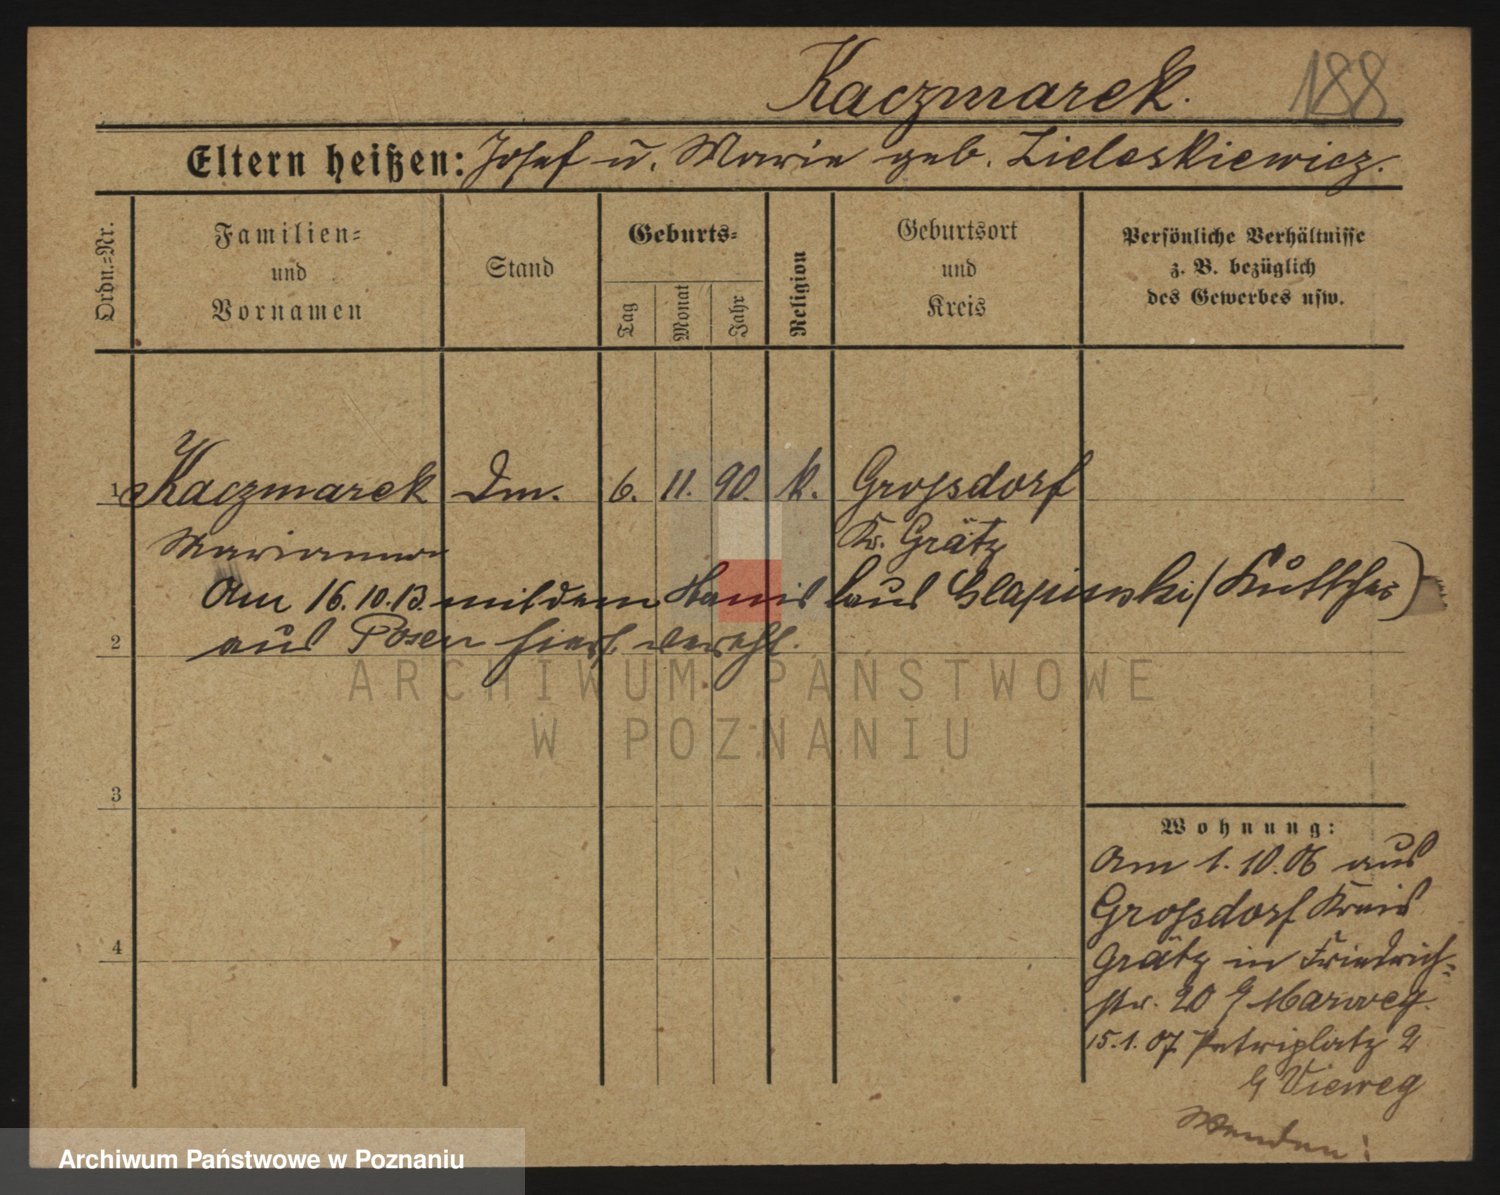 Kaczmarek. 188
Eltern heißen: Josef u. Marie geb. Zieleskiewicz.
Ordn.-Nr.
Familien-
und
Vornamen
Stand
Geburts-
Tag
Monat
Jahr
Religion
Geburtsort
und
Kreis
Persönliche Verhältnisse
z. B. bezüglich
des Gewerbes usw.
1 Kaczmarek Dm. 6. 11. 90. k. Grossdorf
Marianna Kr. Grätz
Am 16.10.13. mit dem Stanislaus Glapinski (Kutscher)
2 aus Posen hiers. verehl.
3
4
Wohnung:
Am 1.10.06 aus
Grossdorf Kreis
Grätz in Friedrich-
str. 20 b
15.1.07 Petriplatz 2
b Vieweg
Wenden!
ARCHIWUM PAŃSTWOWE
W POZNANIU
Archiwum Państwowe w Poznaniu